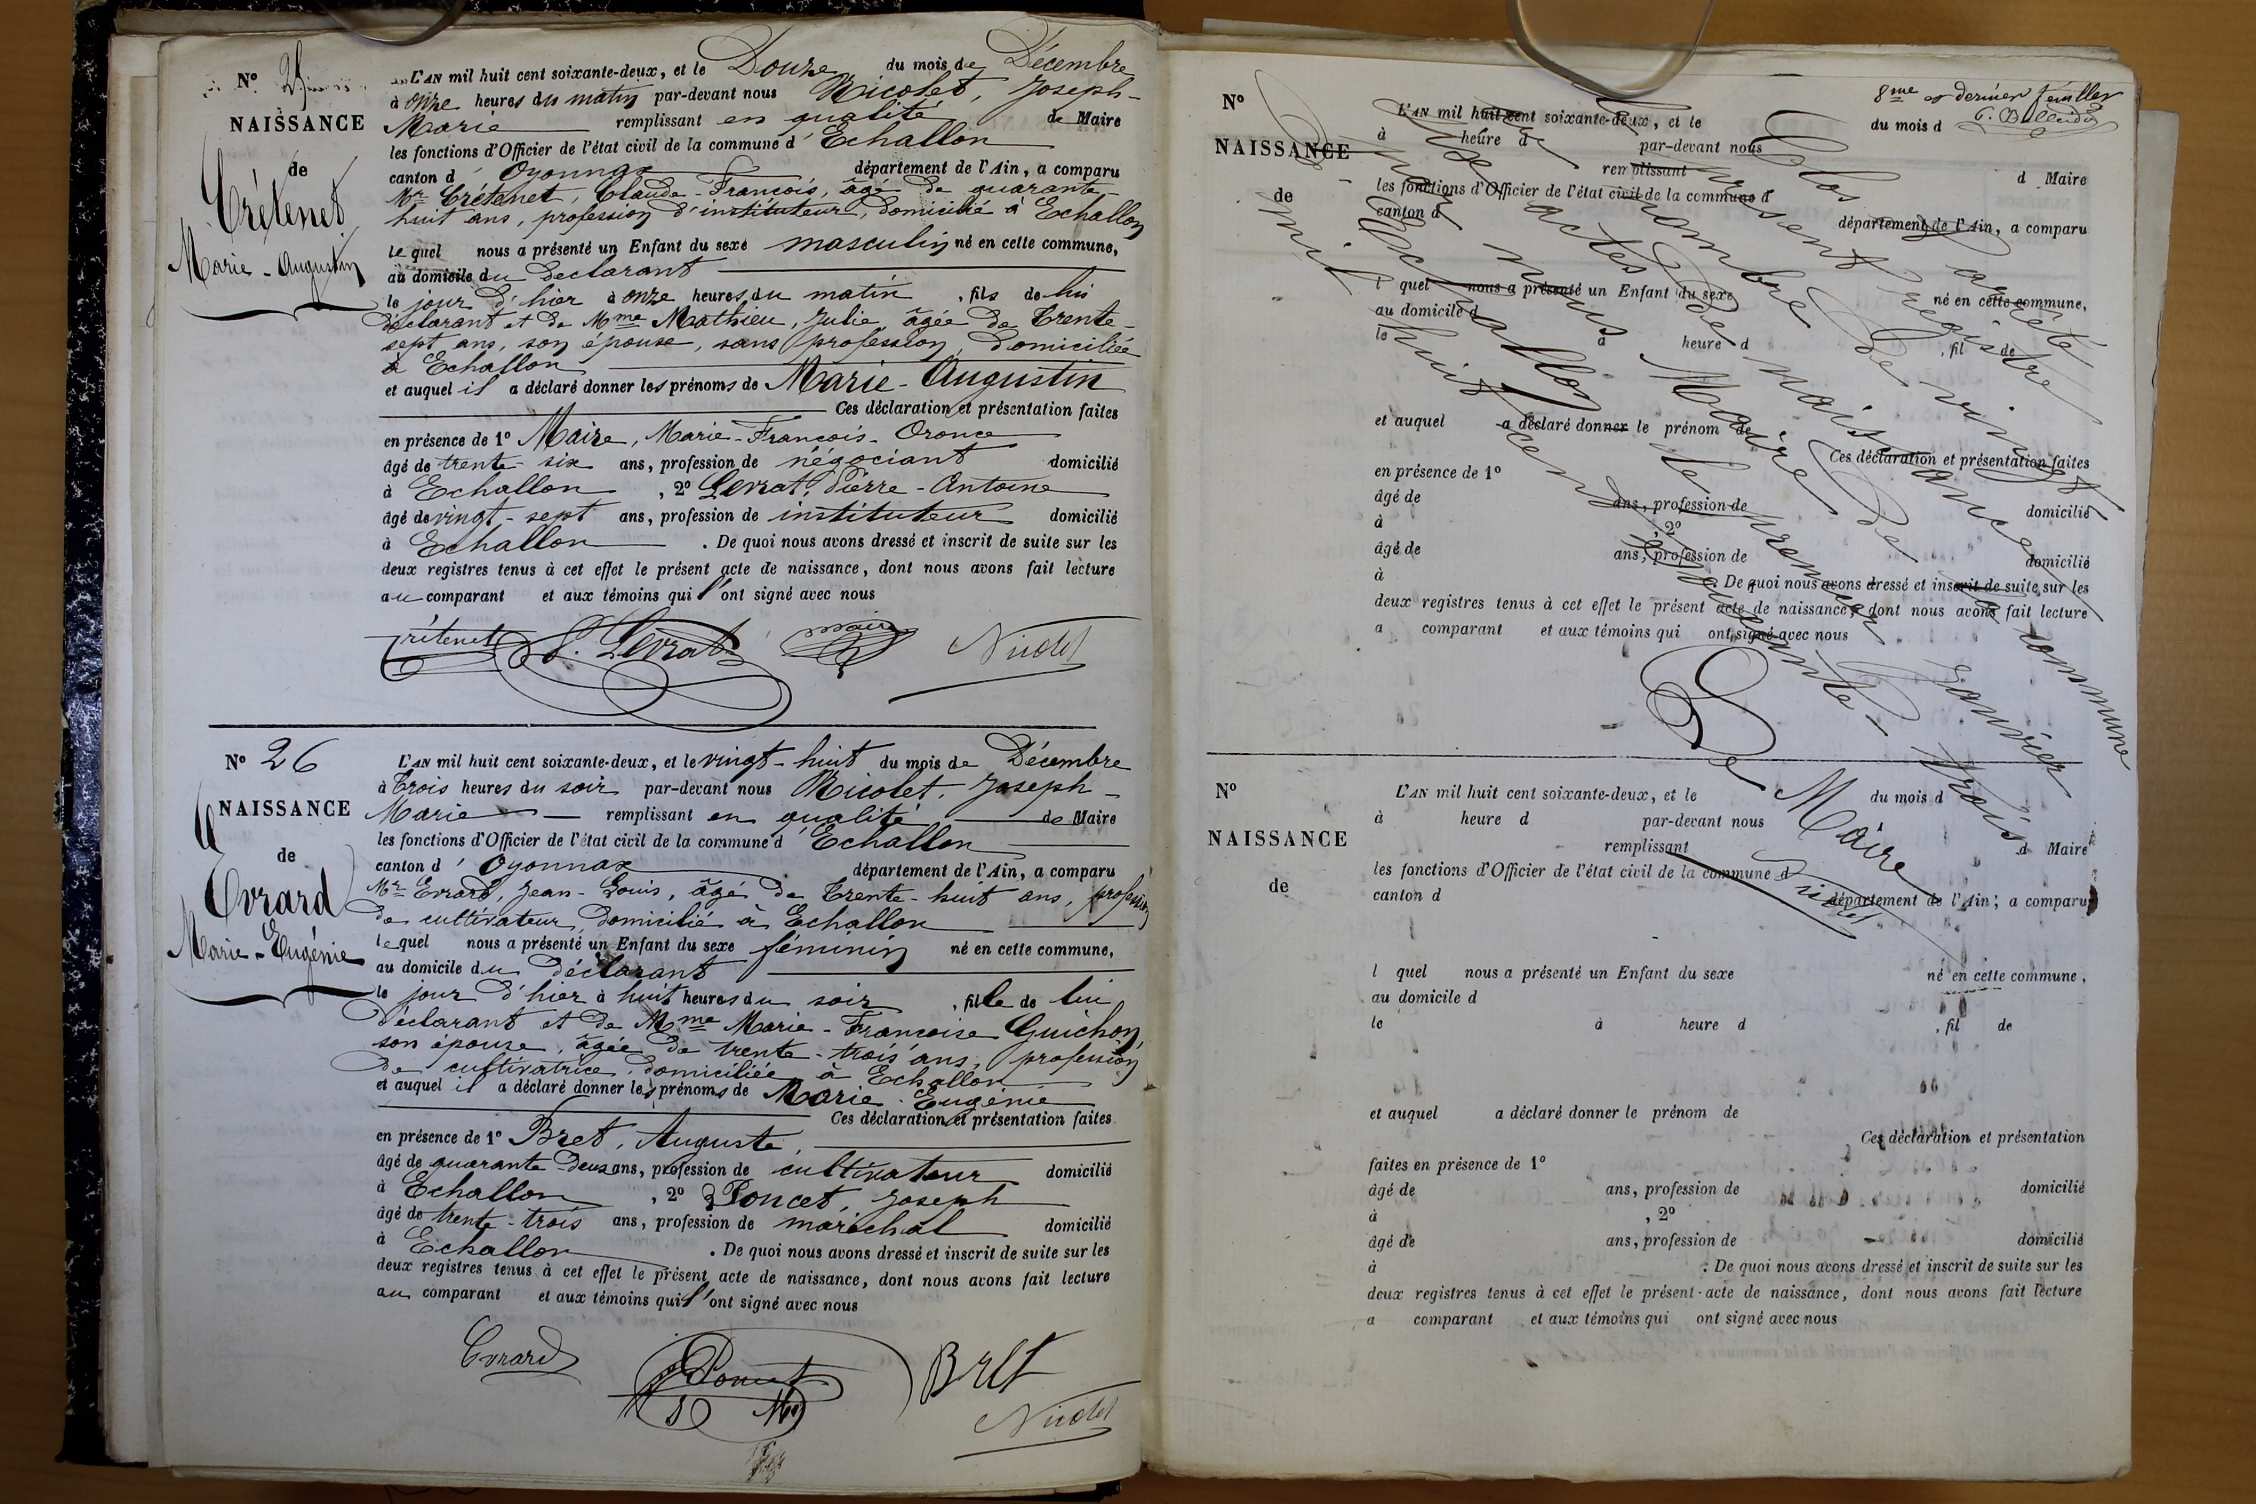 N° 25
NAISSANCE
de
Crétenet
Marie - Augustin
L'AN mil huit cent soixante-deux, et le Douze du mois de Décembre
à onze heures du matin par-devant nous Nicolet, Joseph-
Marie remplissant en qualité de Maire
les fonctions d'Officier de l'état civil de la commune d'Echallon
canton d'Oyonnax département de l'Ain, a comparu
Mr Crétenet, Claude-François, âgé de quarante-
huit ans, profession d'instituteur, domicilié à Echallon
lequel nous a présenté un Enfant du sexe masculin né en cette commune,
au domicile du declarant
le jour d'hier à onze heures du matin, fils de lui
déclarant et de Mme Mathieu, Julie, âgée de trente-
sept ans, son épouse, sans profession, domiciliée
à Echallon
et auquel il a déclaré donner les prénoms de Marie-Augustin
Ces déclaration et présentation faites
en présence de 1° Maire, Marie-François-Oronce
âgé de trente-six ans, profession de négociant domicilié
à Echallon, 2° Levrat, Pierre-Antoine
âgé de vingt-sept ans, profession de instituteur domicilié
à Echallon. De quoi nous avons dressé et inscrit de suite sur les
deux registres tenus à cet effet le présent acte de naissance, dont nous avons fait lecture
au comparant et aux témoins qui l'ont signé avec nous
Crétenet P. Levrat Maire Nicolet
N° 26
NAISSANCE
de
Evrard
Marie-Eugénie
L'AN mil huit cent soixante-deux, et le vingt-huit du mois de Décembre
à trois heures du soir par-devant nous Nicolet, Joseph-
Marie remplissant en qualité de Maire
les fonctions d'Officier de l'état civil de la commune d'Echallon
canton d'Oyonnax département de l'Ain, a comparu
Mr Evrard, Jean-Louis, âgé de trente-huit ans, profession
de cultivateur, domicilié à Echallon
lequel nous a présenté un Enfant du sexe féminin né en cette commune,
au domicile du déclarant
le jour d'hier à huit heures du soir, fille de lui
déclarant et de Mme Marie-Francoise Guichon,
son épouse, âgée de trente-trois ans, profession
de cultivatrice, domiciliée à Echallon
et auquel il a déclaré donner les prénoms de Marie-Eugénie
Ces déclaration et présentation faites
en présence de 1° Bret, Auguste,
âgé de quarante-deux ans, profession de cultivateur domicilié
à Echallon, 2° Poncet, Joseph
âgé de trente-trois ans, profession de maréchal domicilié
à Echallon. De quoi nous avons dressé et inscrit de suite sur les
deux registres tenus à cet effet le présent acte de naissance, dont nous avons fait lecture
au comparant et aux témoins qui l'ont signé avec nous
Evrard Poncet Bret
Nicolet
8me et dernier feuillet
N°
NAISSANCE
de
L'AN mil huit cent soixante-deux, et le du mois d
à heure d par-devant nous
remplissant d Maire
les fonctions d'Officier de l'état civil de la commune d
canton d département de l'Ain, a comparu
l quel nous a présenté un Enfant du sexe né en cette commune,
au domicile d
le à heure d , fil de
et auquel a déclaré donner le prénom de
Ces déclaration et présentation faites
en présence de 1°
âgé de ans, profession de domicilié
à , 2°
âgé de ans, profession de domicilié
à . De quoi nous avons dressé et inscrit de suite sur les
deux registres tenus à cet effet le présent acte de naissance, dont nous avons fait lecture
a comparant et aux témoins qui ont signé avec nous
Clos et arrêté
le présent registre
au nombre de vingt
six actes de naissance
par nous Maire de la commune
d'Echallon le premier Janvier
mil huit cent soixante-trois
Le Maire
Nicolet
N°
NAISSANCE
de
L'AN mil huit cent soixante-deux, et le du mois d
à heure d par-devant nous
remplissant d Maire
les fonctions d'Officier de l'état civil de la commune d
canton d département de l'Ain, a comparu
l quel nous a présenté un Enfant du sexe né en cette commune,
au domicile d
le à heure d , fil de
et auquel a déclaré donner le prénom de
Ces déclaration et présentation
faites en présence de 1°
âgé de ans, profession de domicilié
à , 2°
âgé de ans, profession de domicilié
à . De quoi nous avons dressé et inscrit de suite sur les
deux registres tenus à cet effet le présent acte de naissance, dont nous avons fait lecture
a comparant et aux témoins qui ont signé avec nous